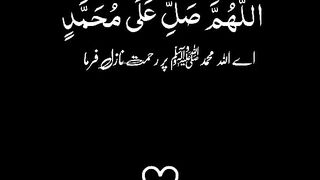 اللّٰهُمَّ صَلِّ عَلَى مُحَمَّدٍ
اے اللہ محمد ﷺ پر رحمت نازل فرما